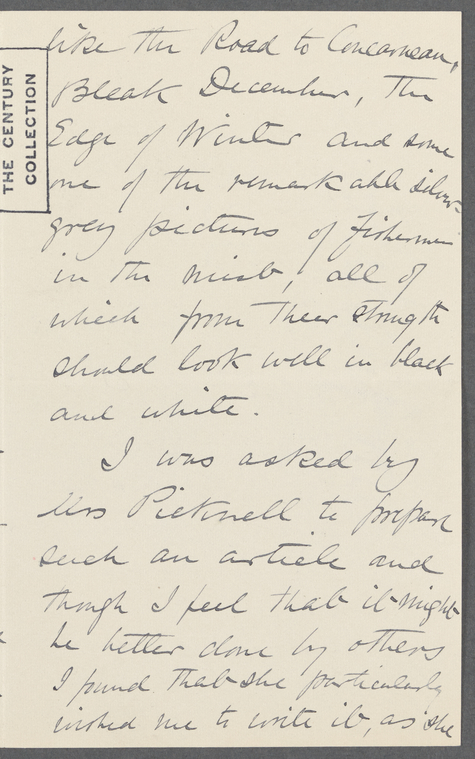 THE CENTURY
COLLECTION
like the Road to Concarneau,
Bleak December, the
Edge of Winter and some
one of the remarkable silver-
grey pictures of fishermen
in the mist, all of
which from their strength
should look well in black
and white.
I was asked by
Mrs Picknell to prepare
such an article and
though I feel that it might
be better done by others
I found that she particularly
wished me to write it, as she